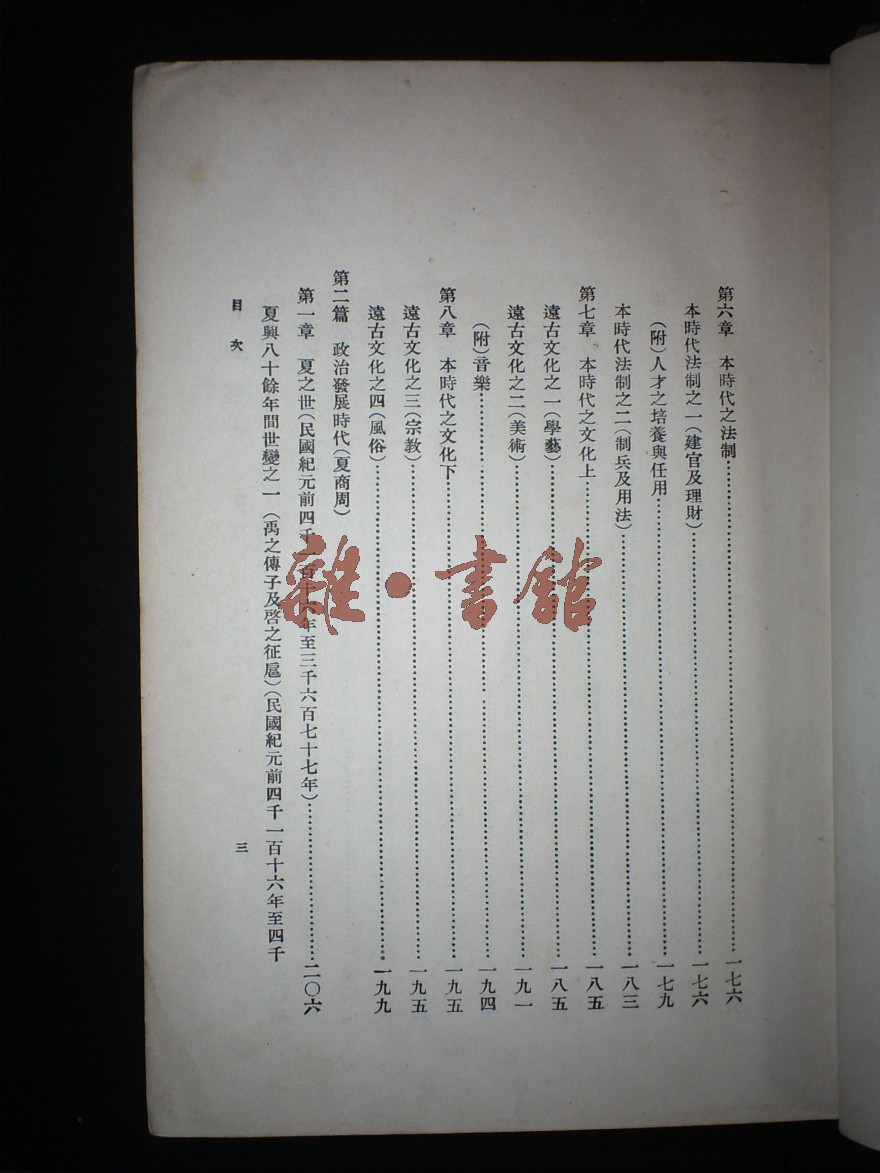 第六章　本時代之法制……一七六
本時代法制之一（建官及理財）……一七六
（附）人才之培養與任用……一七九
本時代法制之二（制兵及用法）……一八三
第七章　本時代之文化上……一八五
遠古文化之一（學藝）……一八五
遠古文化之二（美術）……一九一
（附）音樂……一九四
第八章　本時代之文化下……一九五
遠古文化之三（宗教）……一九五
遠古文化之四（風俗）……一九九
第二篇　政治發展時代（夏商周）
第一章　夏之世（民國紀元前四千一百十六年至三千六百七十七年）……二〇六
夏興八十餘年間世變之一（禹之傳子及啓之征扈）（民國紀元前四千一百十六年至四千
目次　三
雜·書館